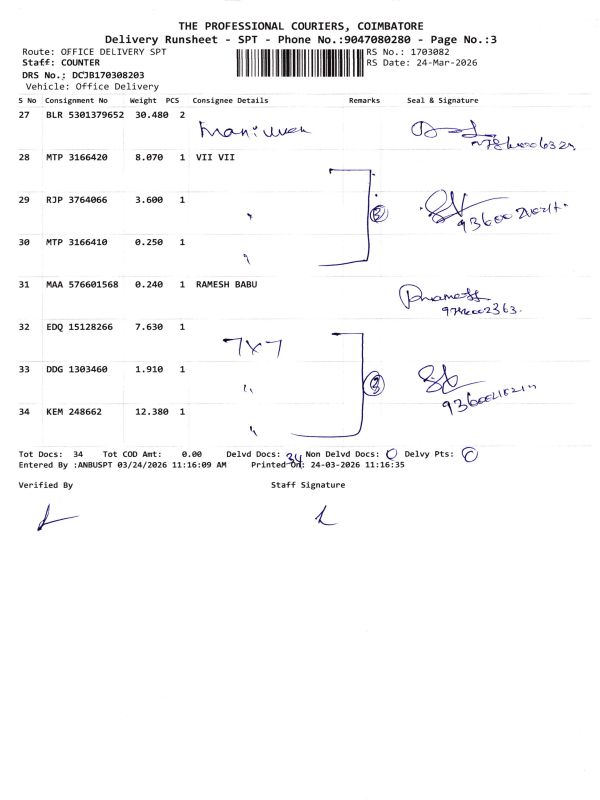 THE PROFESSIONAL COURIERS, COIMBATORE
Delivery Runsheet - SPT - Phone No.:9047080280 - Page No.:3
Route: OFFICE DELIVERY SPT RS No.: 1703082
Staff: COUNTER RS Date: 24-Mar-2026
DRS No.: DCJB170308203
Vehicle: Office Delivery
S No Consignment No Weight PCS Consignee Details Remarks Seal & Signature
27 BLR 5301379652 30.480 2
28 MTP 3166420 8.070 1 VII VII
29 RJP 3764066 3.600 1 " 3
30 MTP 3166410 0.250 1 "
31 MAA 576601568 0.240 1 RAMESH BABU
32 EDQ 15128266 7.630 1 7x7
33 DDG 1303460 1.910 1 " 3
34 KEM 248662 12.380 1 "
Tot Docs: 34 Tot COD Amt: 0.00 Delvd Docs: 34 Non Delvd Docs: 0 Delvy Pts: 0
Entered By :ANBUSPT 03/24/2026 11:16:09 AM Printed On: 24-03-2026 11:16:35
Verified By Staff Signature